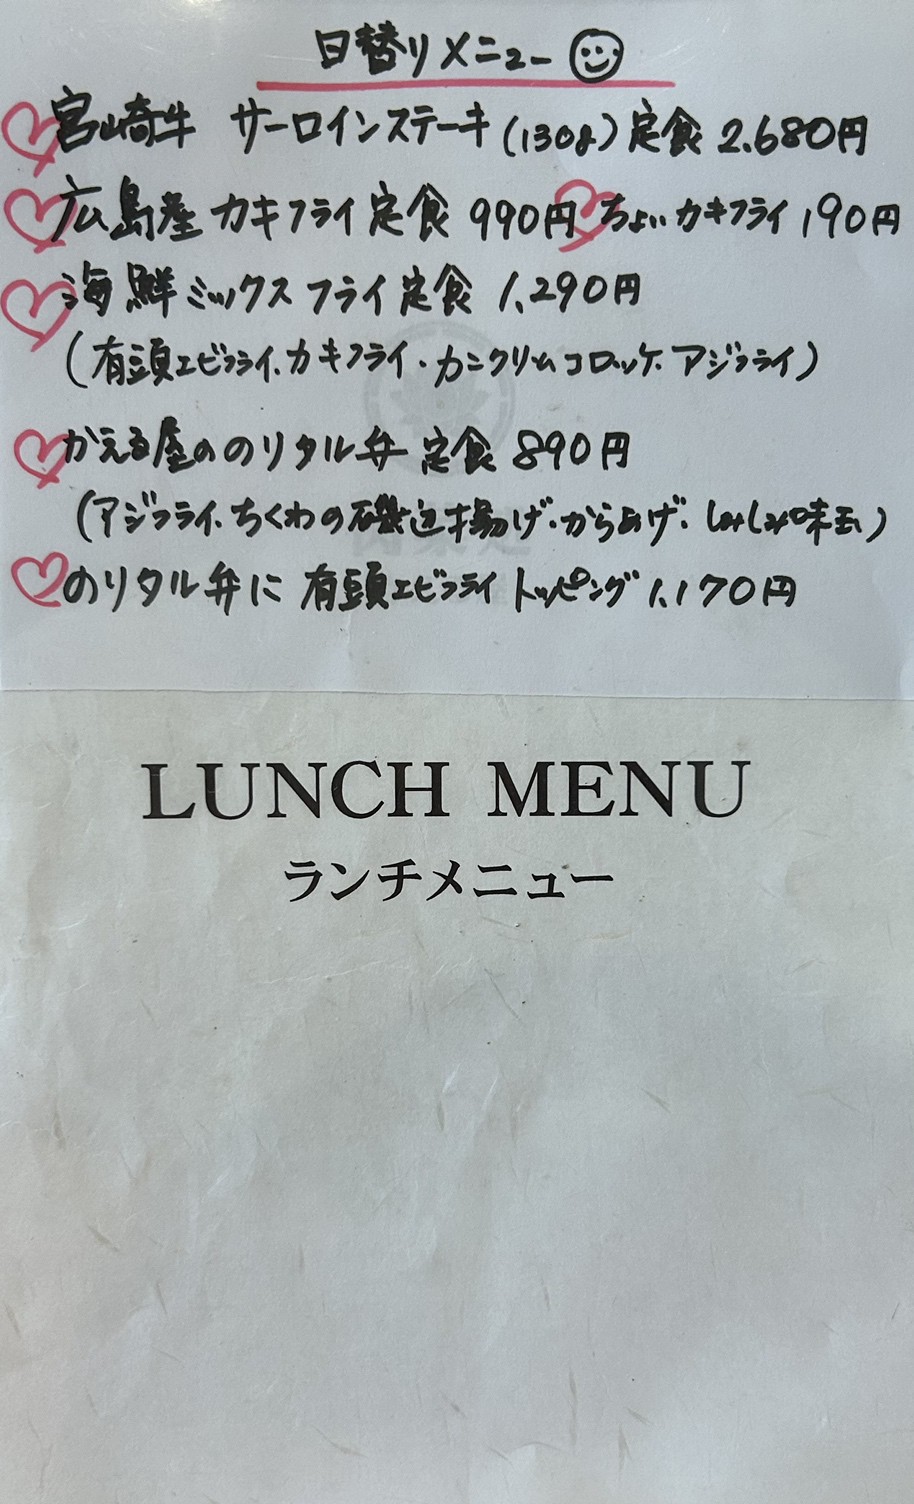 日替りメニュー
宮崎牛 サーロインステーキ(130g)定食 2.680円
広島産 カキフライ定食 990円 ちょいカキフライ 190円
海鮮ミックスフライ定食 1.290円
(有頭エビフライ.カキフライ・カニクリームコロッケ.アジフライ)
かえる屋ののりタル弁 定食 890円
(アジフライ.ちくわの磯辺揚げ.からあげ.しみしみ味玉)
のりタル弁に 有頭エビフライ トッピング 1.170円
LUNCH MENU
ランチメニュー